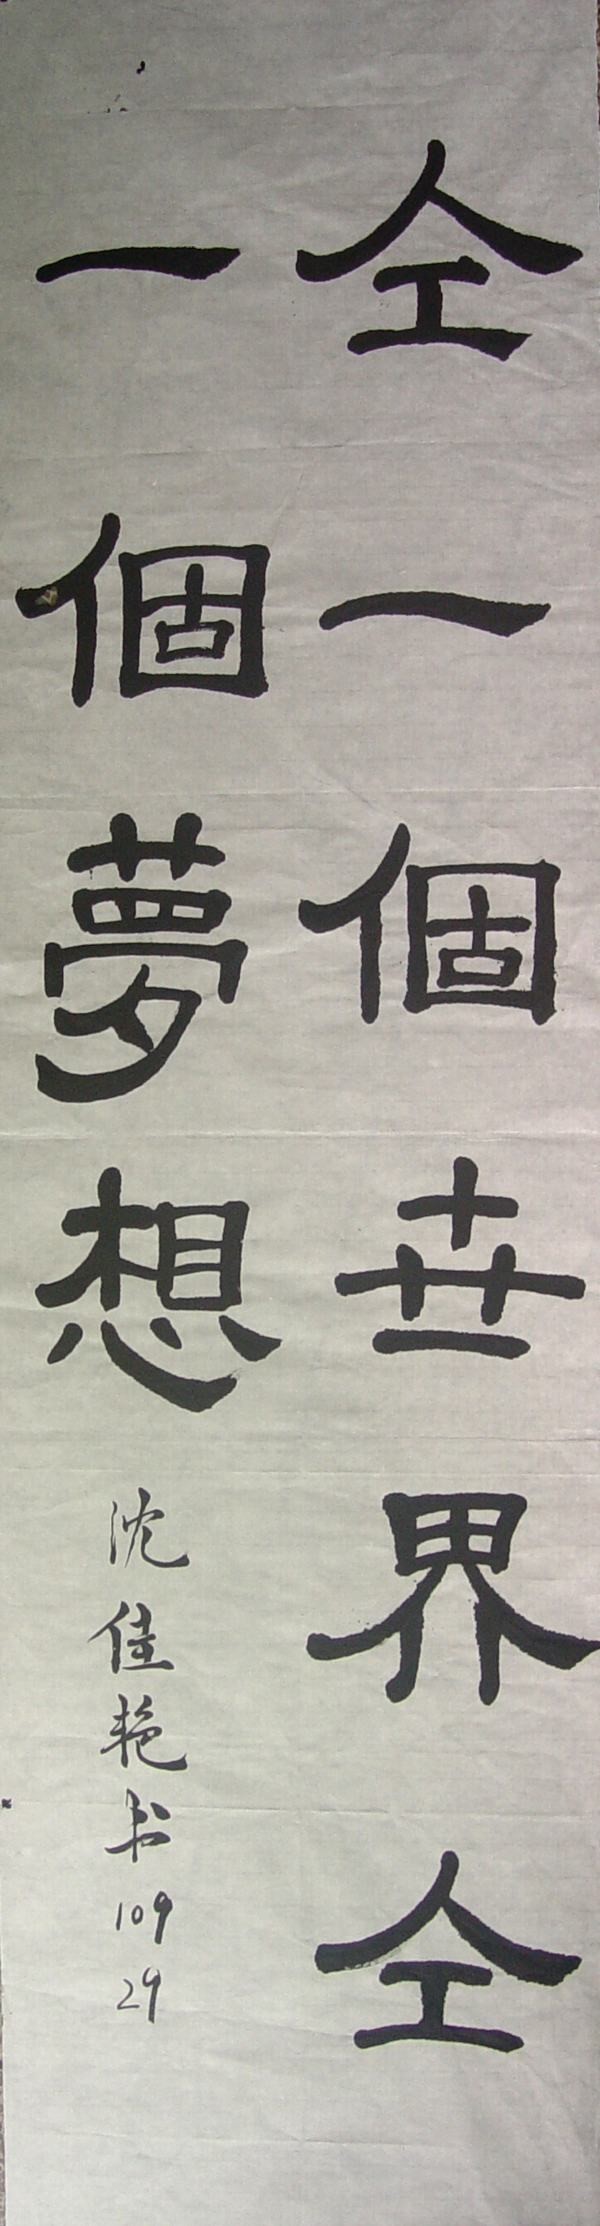 仝一個卋界仝
一個夢想
沈佳艳书
109
29